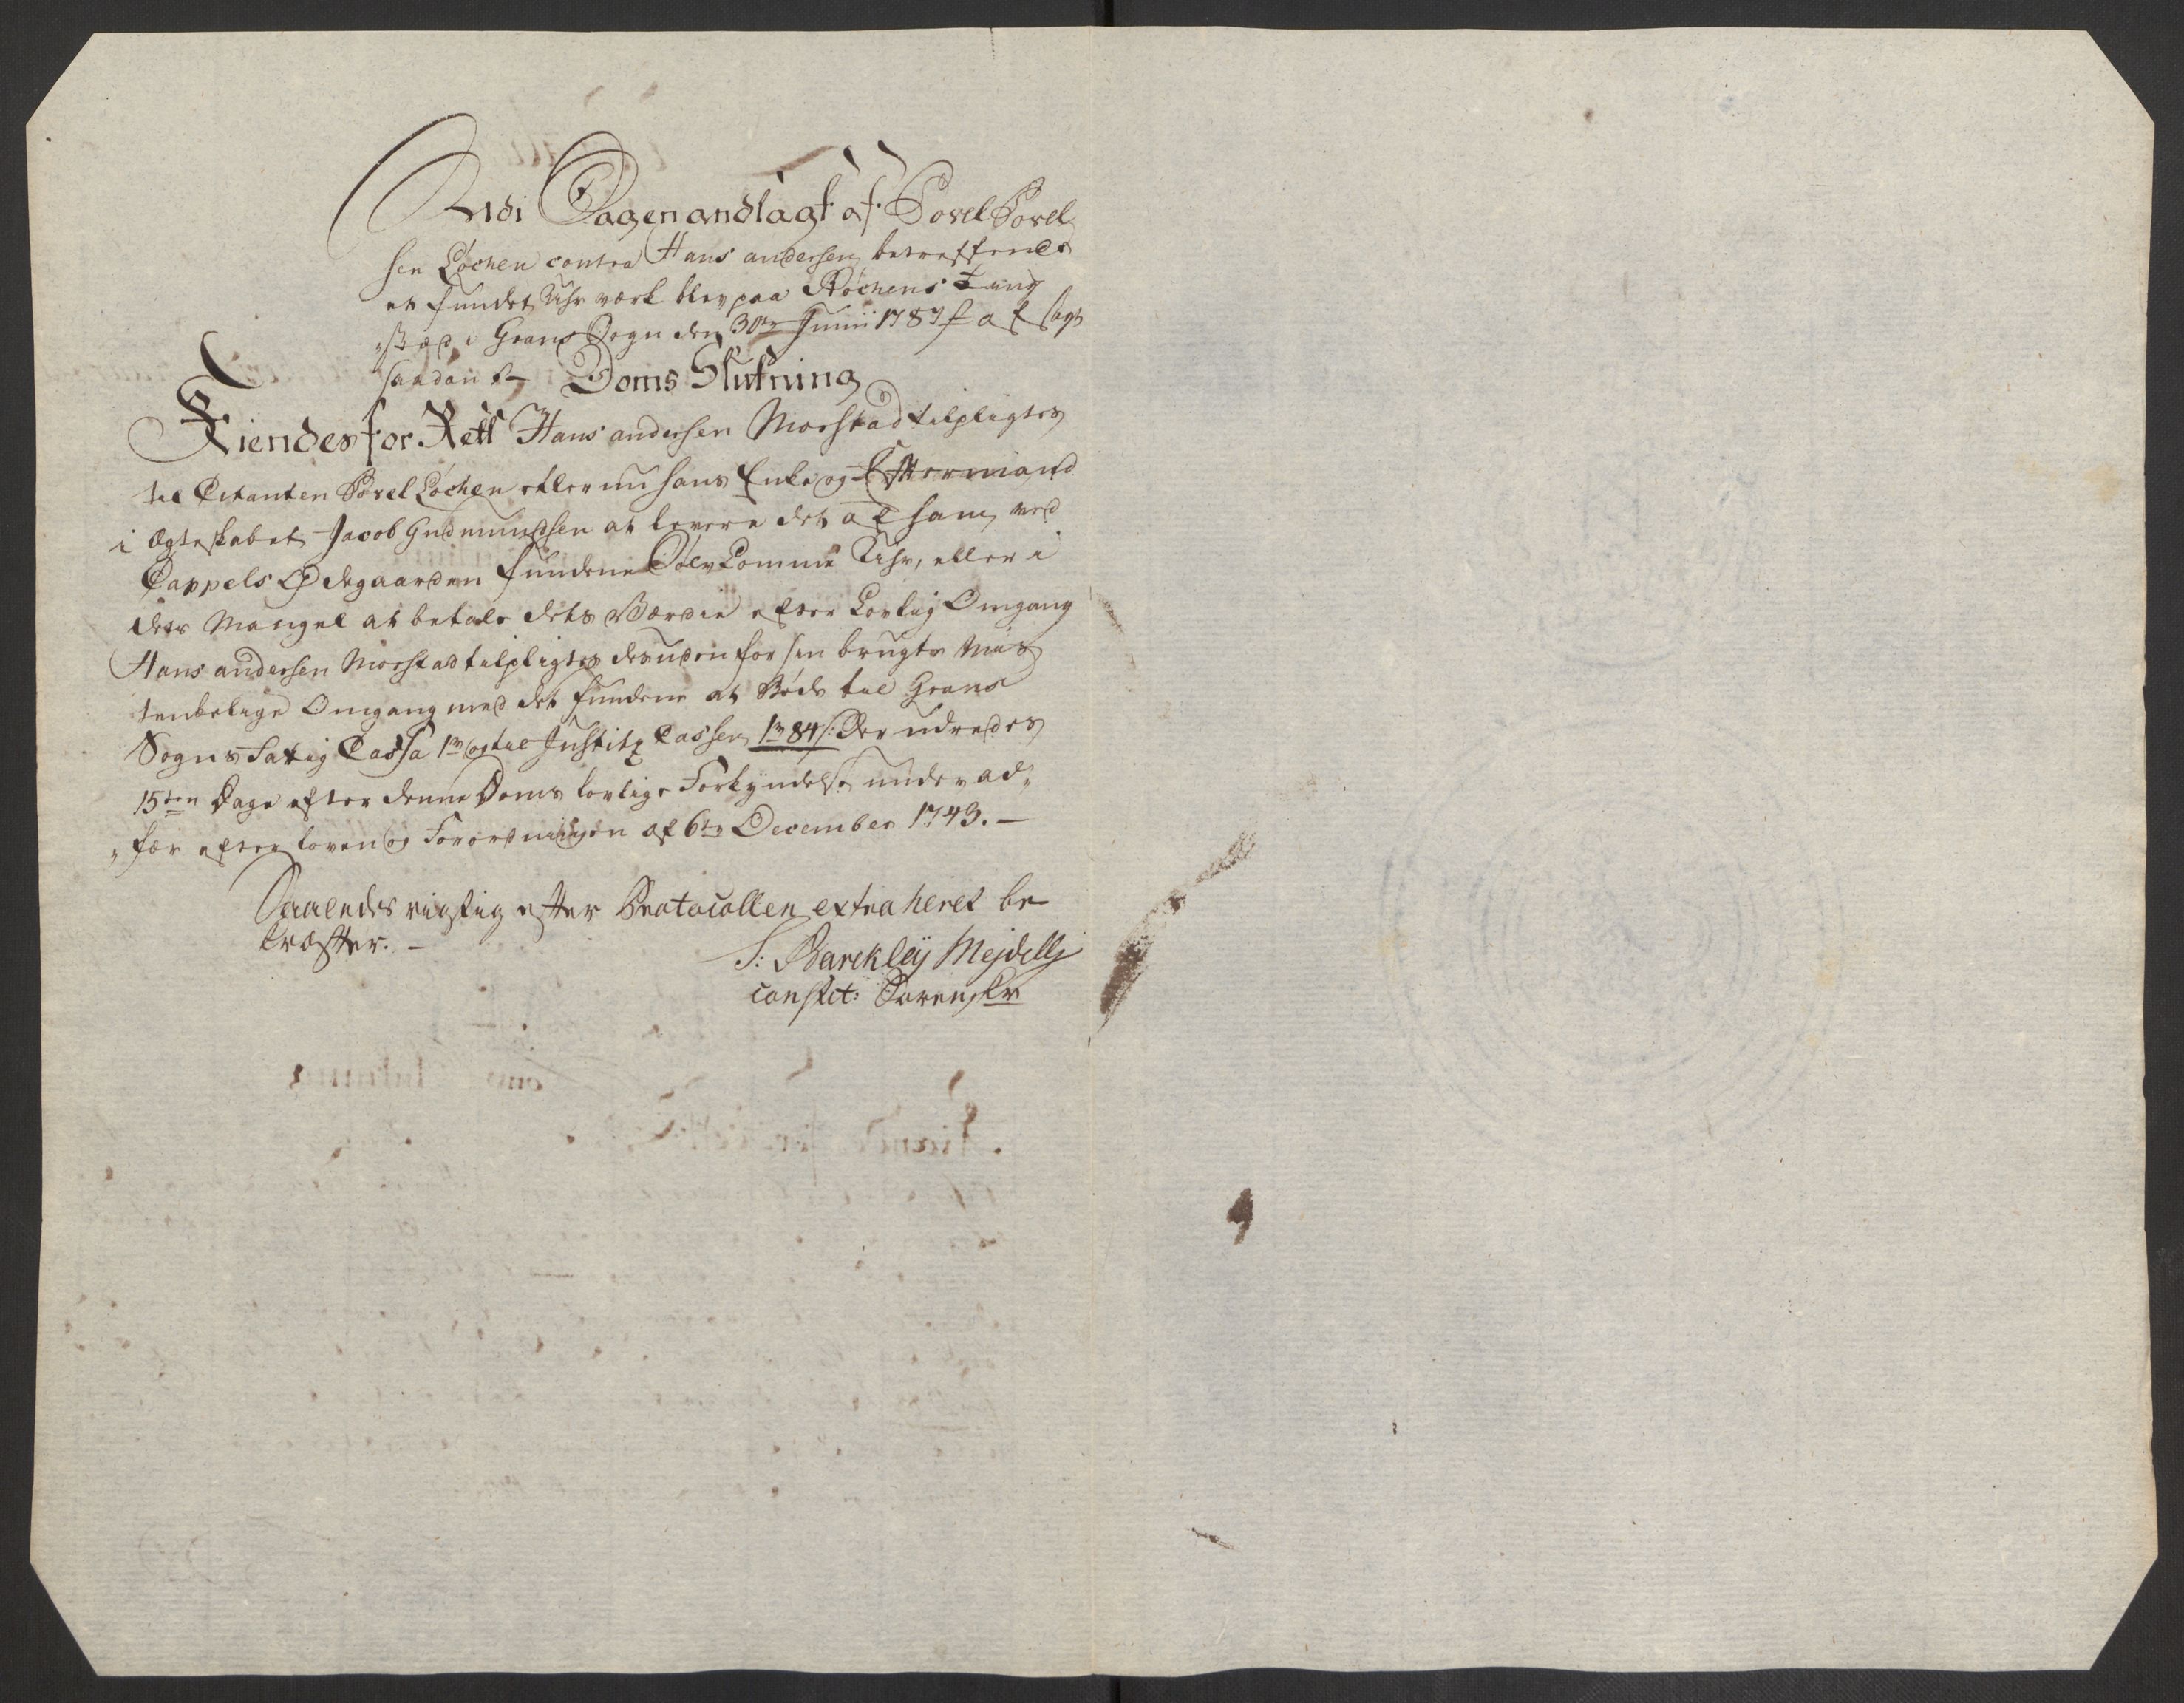 Udi Sagen anlagt af Povel Povel
sen Løchen contra Hans andersen betreffende
et fundet Uhr værk blev paa Røchens Ting
„sted i Grans Sogn den 30te Junii 1787 afsagt
saadan Doms Slutning
Kiendes for Rett Hans andersen Morstad tilpligtes
til Citanten Povel Løchen eller nu hans Enke og Eftermand
i Ægteskabet Jacob Gudmundsen at levere det af ham ved
Cappels Ødegaarden fundene Sølv Lomme Uhr, eller i
dets Mangel at betale dets Værdie efter Lovlig Omgang
Hans andersen Morstad tilpligtes desuden for sin brugte Mis
tenkelige Omgang med det fundene at Bøde til Grans
Sogns Fattig Cassa 1rd og til Justitz Cassen 1rd 84s: Der udredes
15ten Dage efter denne Doms lovlige Forkyndelse under ad„
„fær efter loven og Forordningen af 6te December 1743. –
Saaledes rigtig efter Protocollen extraheret be
kræfter. –
S: Barckleÿ Mejdell
constit: Sorenskr